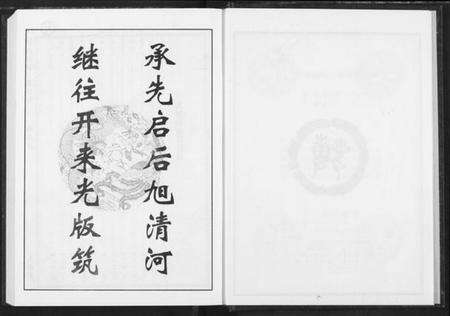 承先启后旭清河
继往开来光版筑